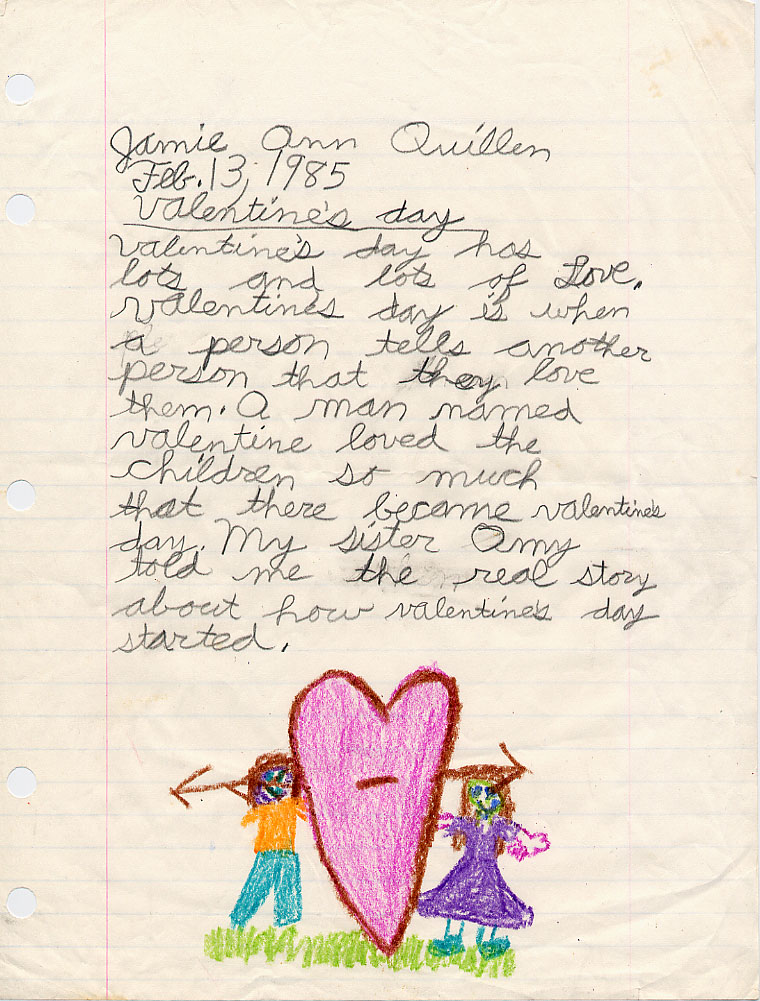 Jamie Ann Quillen
Feb. 13, 1985
Valentine's day
Valentine's day has
lots and lots of Love.
Valentines day is when
a person tells another
person that they love
them. A man named
valentine loved the
children so much
that there became valentine's
day. My sister Amy
told me the real story
about how valentine's day
started.